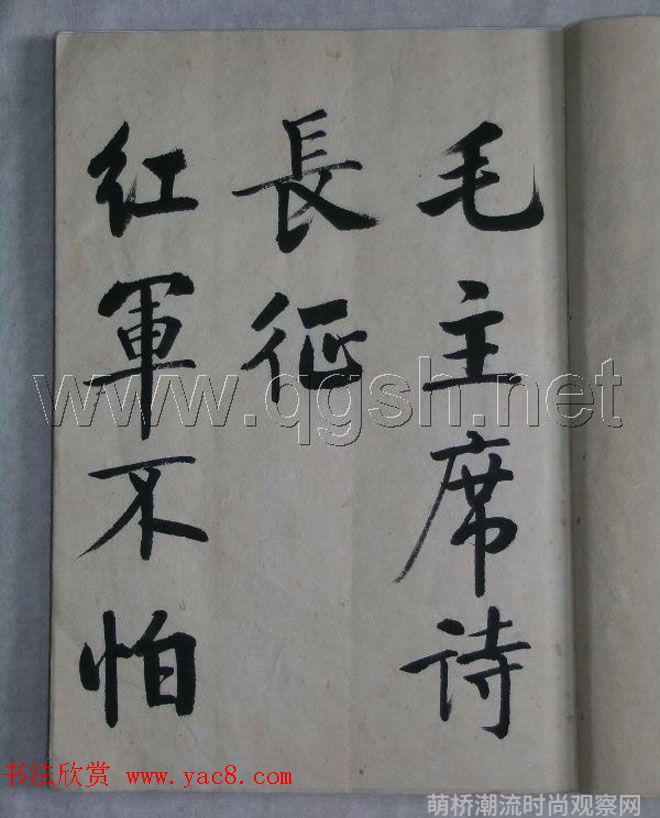 毛主席诗
長征
红軍不怕
www.qgsh.net
书法欣赏 www.yac8.com
萌桥潮流时尚观察网